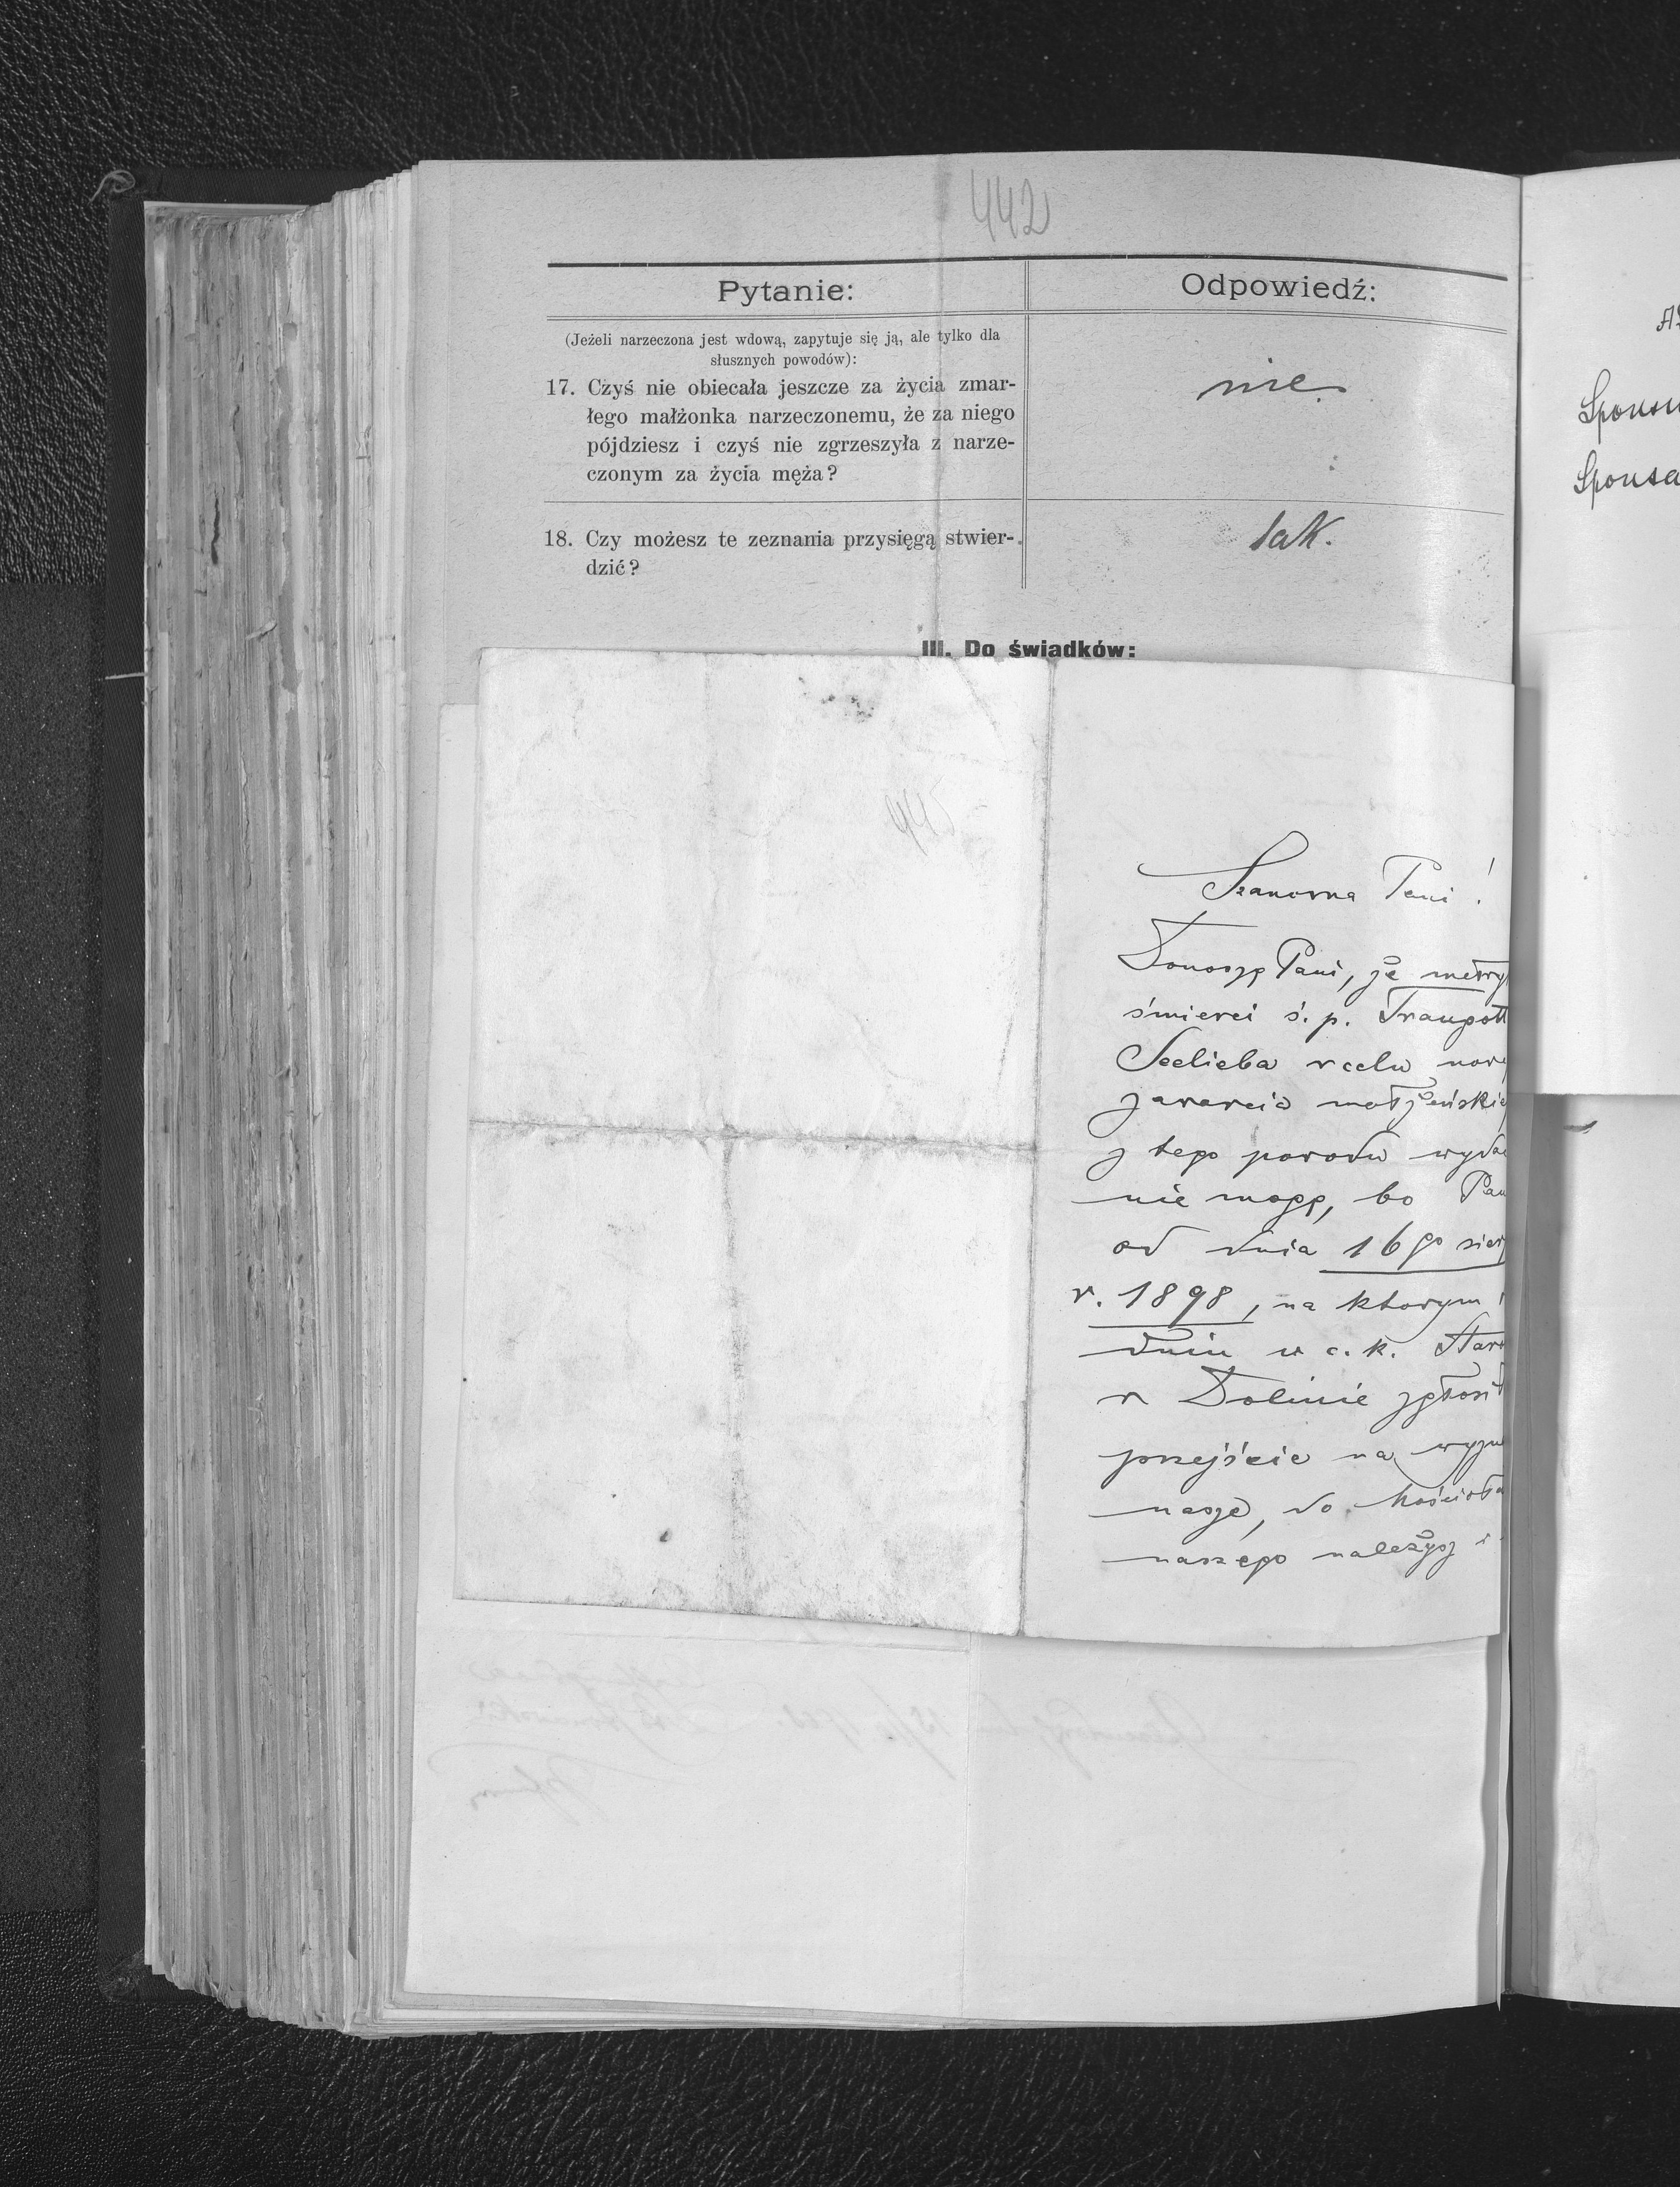 442
Pytanie:
Odpowiedź:
(Jeżeli narzeczona jest wdową, zapytuje się ją, ale tylko dla
słusznych powodów):
17. Czyś nie obiecała jeszcze za życia zmar-
łego małżonka narzeczonemu, że za niego
pójdziesz i czyś nie zgrzeszyła z narze-
czonym za życia męża?
nie.
18. Czy możesz te zeznania przysięgą stwier-
dzić?
tak.
III. Do świadków:
445
Szanowna Pani!
Donoszę Pani, że metry
śmierci ś. p. Traugott
Seelieba w celu now
zawarcia małżeńskie
z tego powodu wydać
nie mogę, bo Pan
od dnia 16go sier
r. 1898, na ktorym
dniu w c. k. Star
w Dolinie zgłosił
przejście na wyzn
nasze, do kościoła
naszego należysz i
Sponsu
Sponsa